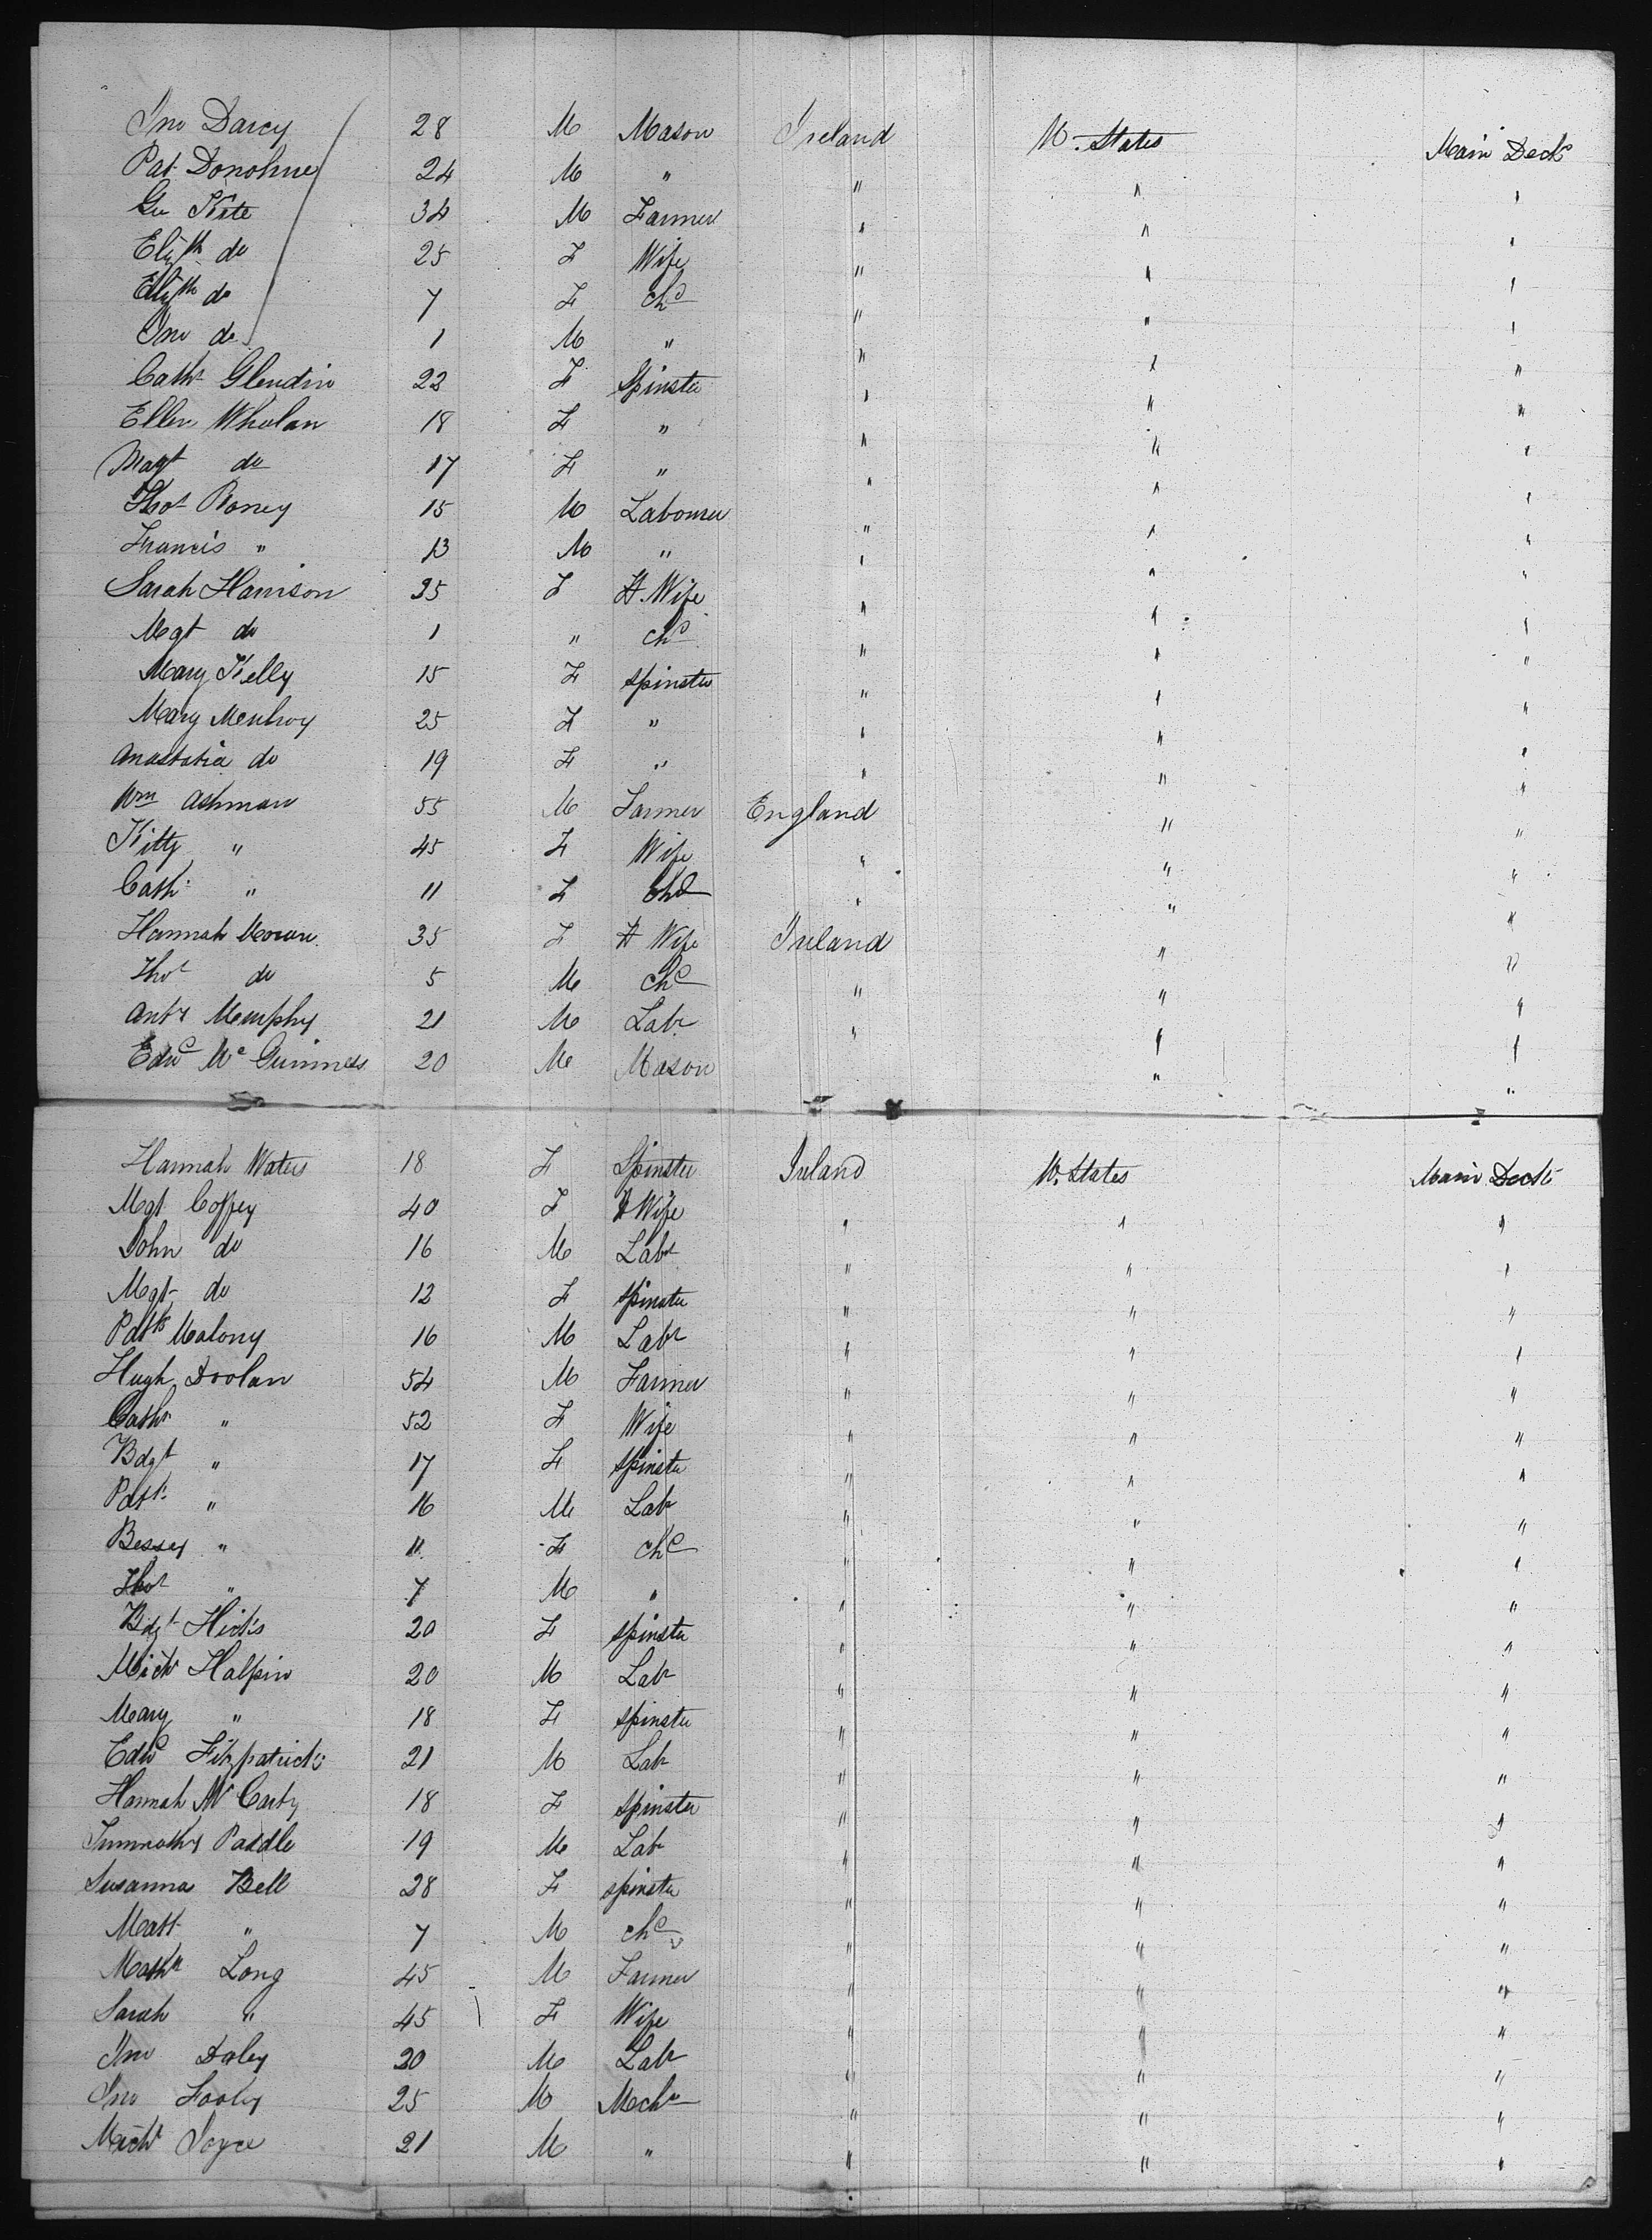 Jno Darcy 28 M Mason Ireland U. States Main Deck
Pat Donohue 24 M " " " "
Geo Kite 34 M Farmer " " "
Elizth do 25 F Wife " " "
Elizth do 7 F Chd " " "
Jno do 1 M " " " "
Cathe Glendin 22 F Spinster " " "
Ellen Whelan 18 F " " " "
Magt do 17 F " " " "
Thos Roney 15 M Labourer " " "
Francis " 13 M " " " "
Sarah Harrison 25 F H. Wife " " "
Mgt do 1 " chd " " "
Mary Kelly 15 F spinster " " "
Mary 25 F " " " "
Anastatia do 19 F " " " "
Wm Ashman 55 M Farmer England " "
Kitty " 45 F Wife " " "
Cath " 11 F Chd " " "
Hannah Moran 35 F H Wife Ireland " "
Thos do 5 M Chd " " "
Anty Murphy 21 M Labr " " "
Edwd Mc Guinness 20 M Mason " "
Hannah Waters 18 F Spinster Ireland U. States Main Deck
Mgt Coffey 40 F H Wife " " "
John do 16 M Labr " " "
Mgt do 12 F spinster " " "
Patk Malony 16 M Labr " " "
Hugh Doolan 54 M Farmer " " "
Cathe " 52 F Wife " " "
Bdgt " 17 F spinster " " "
Patk " 16 M Labr " " "
Bessey " 11 F chd " " "
Thos " 7 M " " " "
Bdgt Hicks 20 F spinster " " "
Michl Halpin 20 M Labr " " "
Mary " 18 F spinster " " "
Edwd Fitzpatrick 21 M Labr " " "
Hannah Mc Carty 18 F spinster " " "
Tummothy Paddle 19 M Labr " " "
Susanna Bell 28 F spinster " " "
Matt " 7 M chd " " "
Mathw Long 45 M Farmer " " "
Sarah " 45 F Wife " " "
Jno Daley 20 M Labr " " "
Jno Fooley 25 M Mechc " " "
Michl Joyce 21 M " " " "